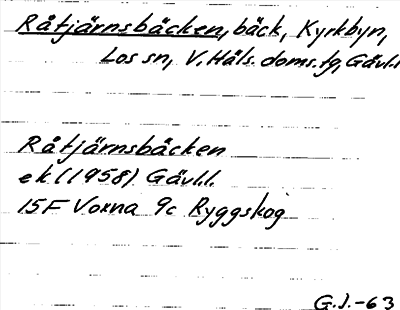 Råtjärnsbäcken, bäck, Kyrkbyn,
Los sn, V. Häls. doms.fg, Gävl.l
Råtjärnsbäcken
ek (1958) Gävl.l.
15F Voxna 9c Ryggskog
G.J.-63